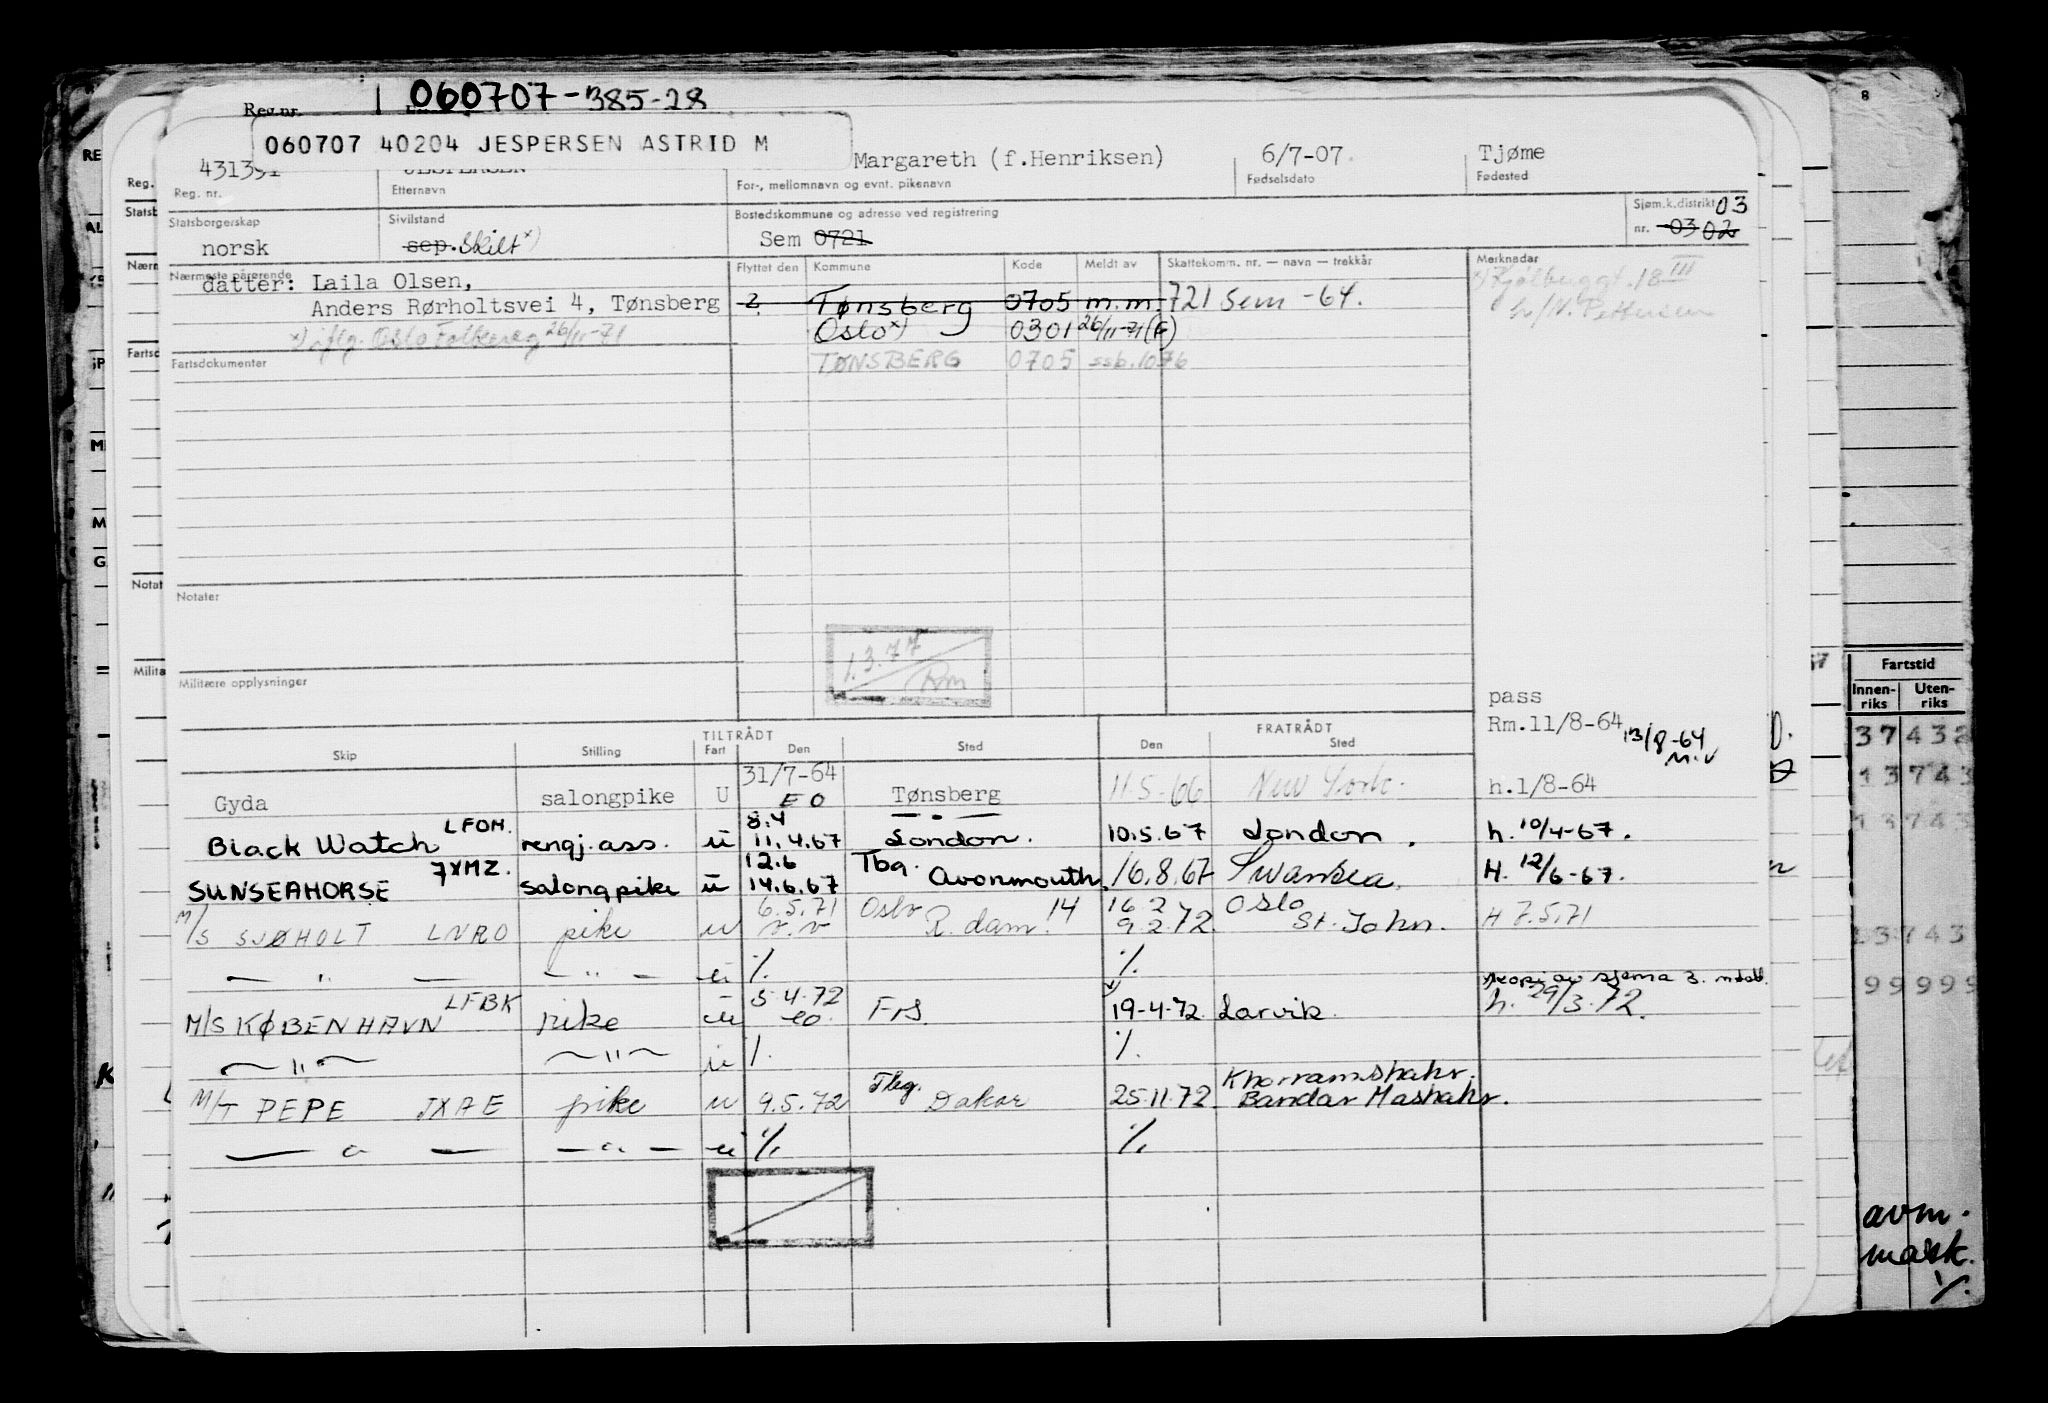 Reg.nr. 060707-385-28
060707 40204 JESPERSEN ASTRID M
Margareth (f.Henriksen) 6/7-07. Tjøme
Reg. nr. Etternavn For-, mellomnavn og evnt. pikenavn Fødselsdato Fødested
Statsborgerskap Sivilstand Bostedskommune og adresse ved registrering Sjøm.k.distrikt 03
norsk sep. Skilt x) Sem 0721 nr. 03 02
Nærmeste pårørende Flyttet den Kommune Kode Meldt av Skattekomm. nr. — navn — trekkår Merknader
datter: Laila Olsen,
Anders Rørholtsvei 4, Tønsberg 2 Tønsberg 0705 m.m. 721 Sem -64.
x) iflg. Oslo Folkereg 26/11-71 Oslo x) 0301 26/11-71 (F)
Fartsdokumenter TØNSBERG 0705 ssb. 1076
Notater
1.3.77
Rm
Militære opplysninger
pass
Rm.11/8-64 13/8-64
TILTRÅDT FRATRÅDT
Skip Stilling Fart Den Sted Den Sted
Gyda salongpike U 31/7-64 EO Tønsberg 11.5-66 New York. h.1/8-64
Black Watch LFOM. rengj.ass. u 8.4 11.4.67 — " — London. 10.5.67 London. h. 10/4-67.
SUNSEAHORSE JXMZ. salongpike u 12.6 14.6.67 Tbg. Avonmouth. 16.8.67 Swansea. H. 12/6-67.
M/S SJØHOLT LNRO pike u 6.5.71 v.v Oslo R.dam. 14 16.2 9.2.72 Oslo St. John. H 7.5.71
— " — — " — u % %
M/S KØBENHAVN LFBK pike u 5.4.72 eo. FrS. 19-4-72 Larvik. h. 29/3.72.
— " — — " — u % %
M/T PEPE JXAE pike u 9.5.72 Tbg. Dakar 25.11.72 Khorramshahr. Bandar Mashahr.
— " — — " — u % %
Fartstid
Innen-riks Uten-riks
37432
13743
13743
13743
99999
avm.
mask.
%